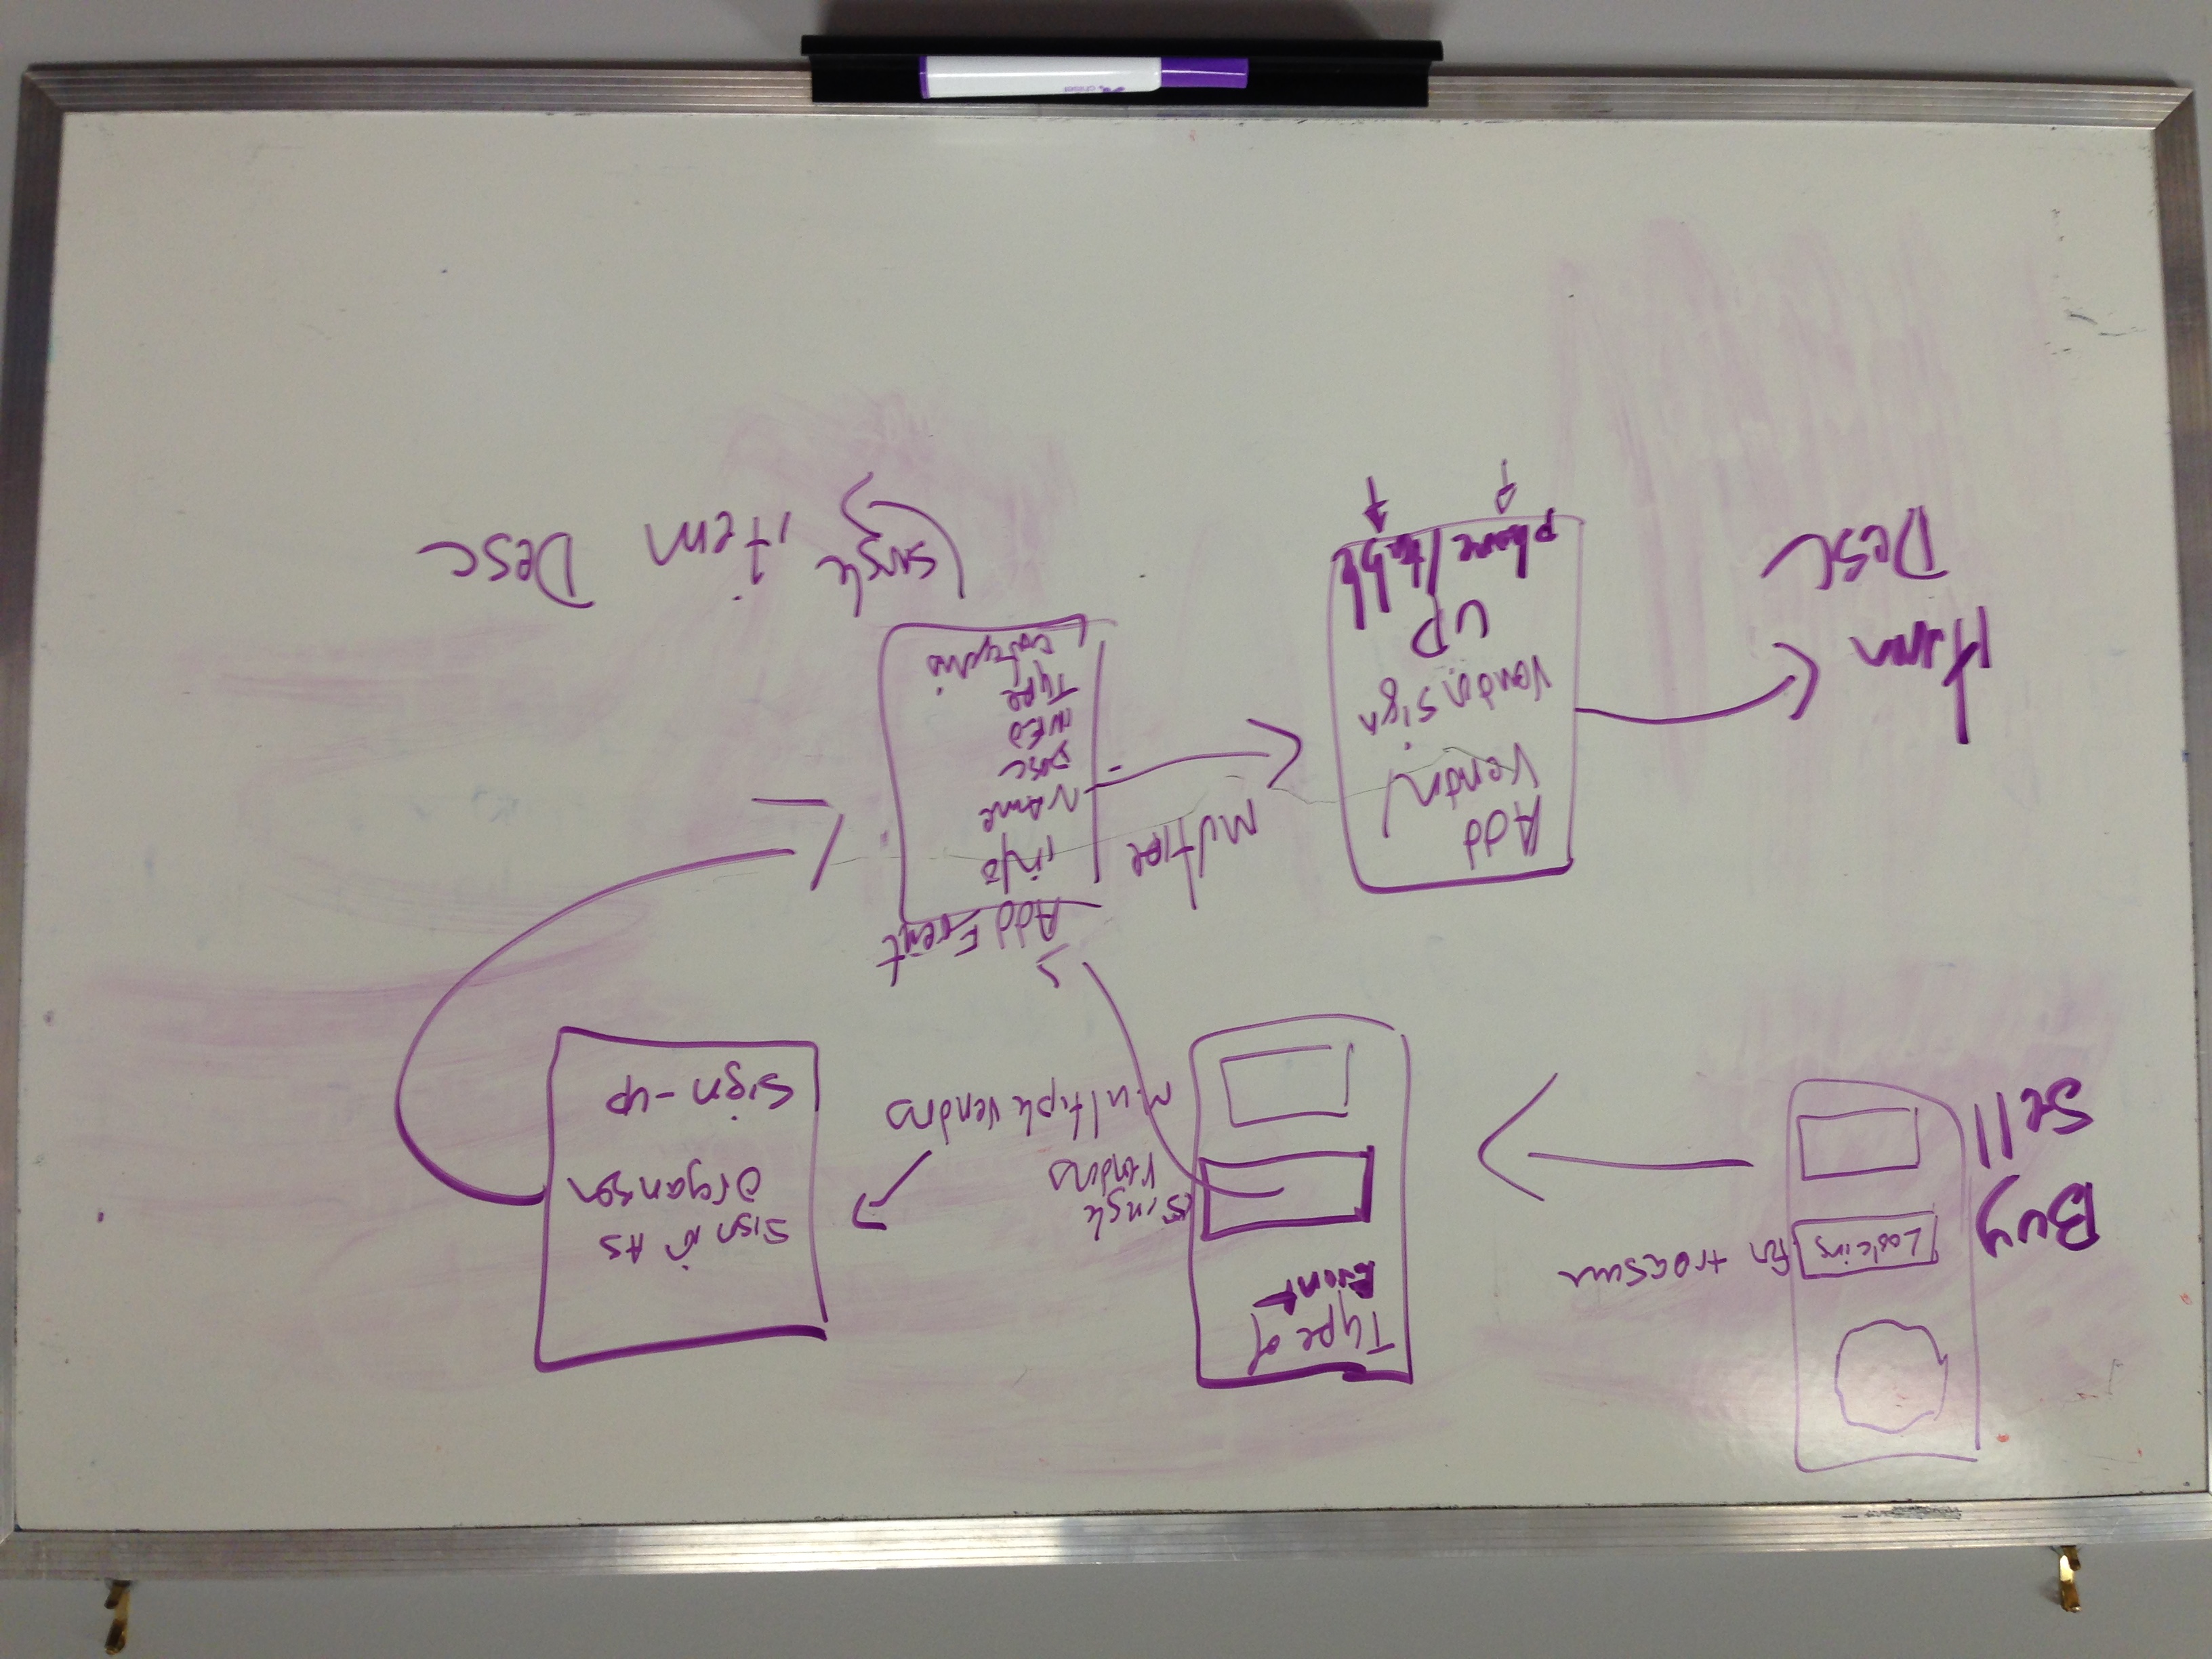 Buy
Looking for treasure
Sell
Type of
Event
Single
vendors
Multiple vendors
Sign in As
Organiser
Sign-up
Add Event
info
NAME
Desc
INFO
Type
categories
Multiple
Add
Vendor/
Vendor sign
UP
phone/table
Item
Desc
single
item Desc